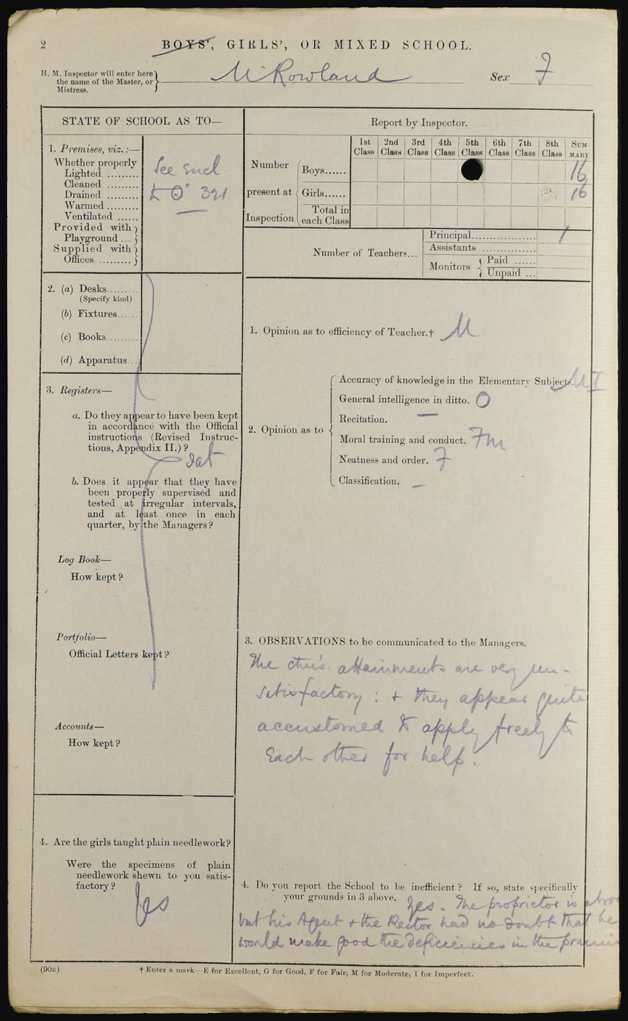 2
BOYS', GIRLS', OR MIXED SCHOOL.
H. M. Inspector will enter here the name of the Master, or Mistress.
M Rowland
Sex F
STATE OF SCHOOL AS TO—
1. Premises, viz.:—
Whether properly
Lighted
Cleaned
Drained
Warmed
Ventilated
Provided with
Playground
Supplied with
Offices
See Encl
to O 321
2. (a) Desks
(Specify kind)
(b) Fixtures
(c) Books
(d) Apparatus
3. Registers—
a. Do they appear to have been kept
in accordance with the Official
instructions (Revised Instruc-
tions, Appendix II.)?
Sat
b. Does it appear that they have
been properly supervised and
tested at irregular intervals,
and at least once in each
quarter, by the Managers?
Log Book—
How kept?
Portfolio—
Official Letters kept?
Accounts—
How kept?
4. Are the girls taught plain needlework?
Were the specimens of plain
needlework shewn to you satis-
factory?
Yes
Report by Inspector.
1st Class 2nd Class 3rd Class 4th Class 5th Class 6th Class 7th Class 8th Class SUMMARY
Number present at Inspection
Boys 16
Girls 16
Total in each Class
Number of Teachers
Principal 1
Assistants
Monitors
Paid
Unpaid
1. Opinion as to efficiency of Teacher.† M
2. Opinion as to
Accuracy of knowledge in the Elementary Subjects. M I
General intelligence in ditto. O
Recitation. —
Moral training and conduct. Fm
Neatness and order. F
Classification. —
3. OBSERVATIONS to be communicated to the Managers.
The attainments are very un-
satisfactory: & they appear quite
accustomed to apply freely to
each other for help.
4. Do you report the School to be inefficient? If so, state specifically
your grounds in 3 above.
Yes. The proprietor is
but his Agent & the Rector had no doubt that he
would make good the deficiencies in the
(90x)
† Enter a mark—E for Excellent, G for Good, F for Fair, M for Moderate, I for Imperfect.